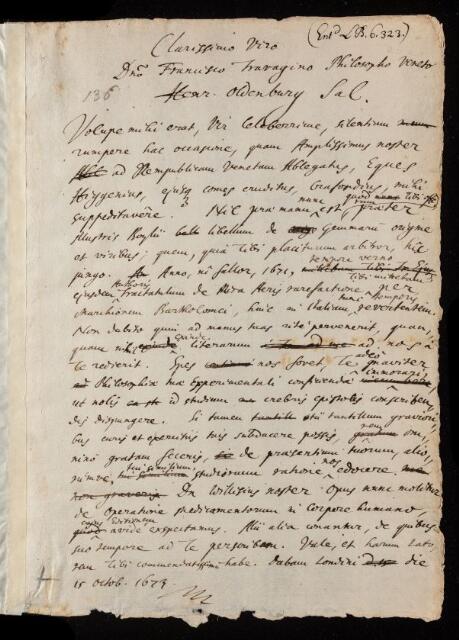 (Entd L.B. 6. 323.)
Clarissimo Viro
Dno Francisco Travagino Philosopho Veneto
136
Henr. Oldenburg Sal.
Volupe mihi erat, Vir Celeberrime, silentium
rumpere hac occasione, quam Amplissimus noster
ad Rempublicam Venetam Ablegatus, Eques
Higgenius, ejusq comes eruditus, mihi
suppeditavêre. Nil prae manu nunc est, praeter
illustris Boylii libellum de Gemmarum origine
et viribus; quem, quia tibi placiturum arbitror, hic
jungo. Anno, ni fallor, 1671, tempore verno
ejusdem Authoris Tractatulum de Mira Aeris rarefactione per
Marchionem Bartholomei, tunc temporis
hinc in Italiam revertentem.
Non dubito quin ad manus tuas rite pervenerit, quan
quam nil exinde literarum ad nos à
te redierit. Spes nos fovet, te adeo graviter
Philosophiae Experimentali conferendae immorari,
ut nolis ad studium crebris epistolis conscriben
dis disjungere. Si tamen tantillum graviori
bus curis et operosius tuis subducere possis, rem om
nino gratam feceris, de praesentium tuorum, alio
rumve, studiorum ratione nos edocere
Dn Willisius noster Opus nunc molitur
de Operatione Medicamentorum in corpore humano,
cujus Editionem avide expectamus. Alii alia conantur, de quibus
suo tempore ad te perscribam. Vale, et harum Lato
rem tibi commendatissimum habe. Dabam Londini die
15 octob. 1673.